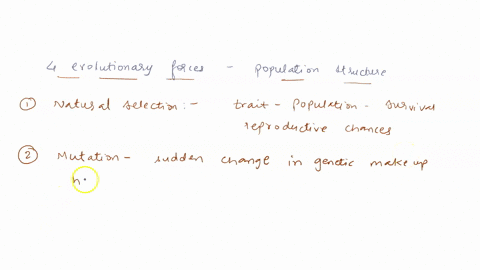 4 evolutionary forces - population structure
① Natural selection :- trait - population - survival
reproductive chances
② Mutation - sudden change in genetic make up